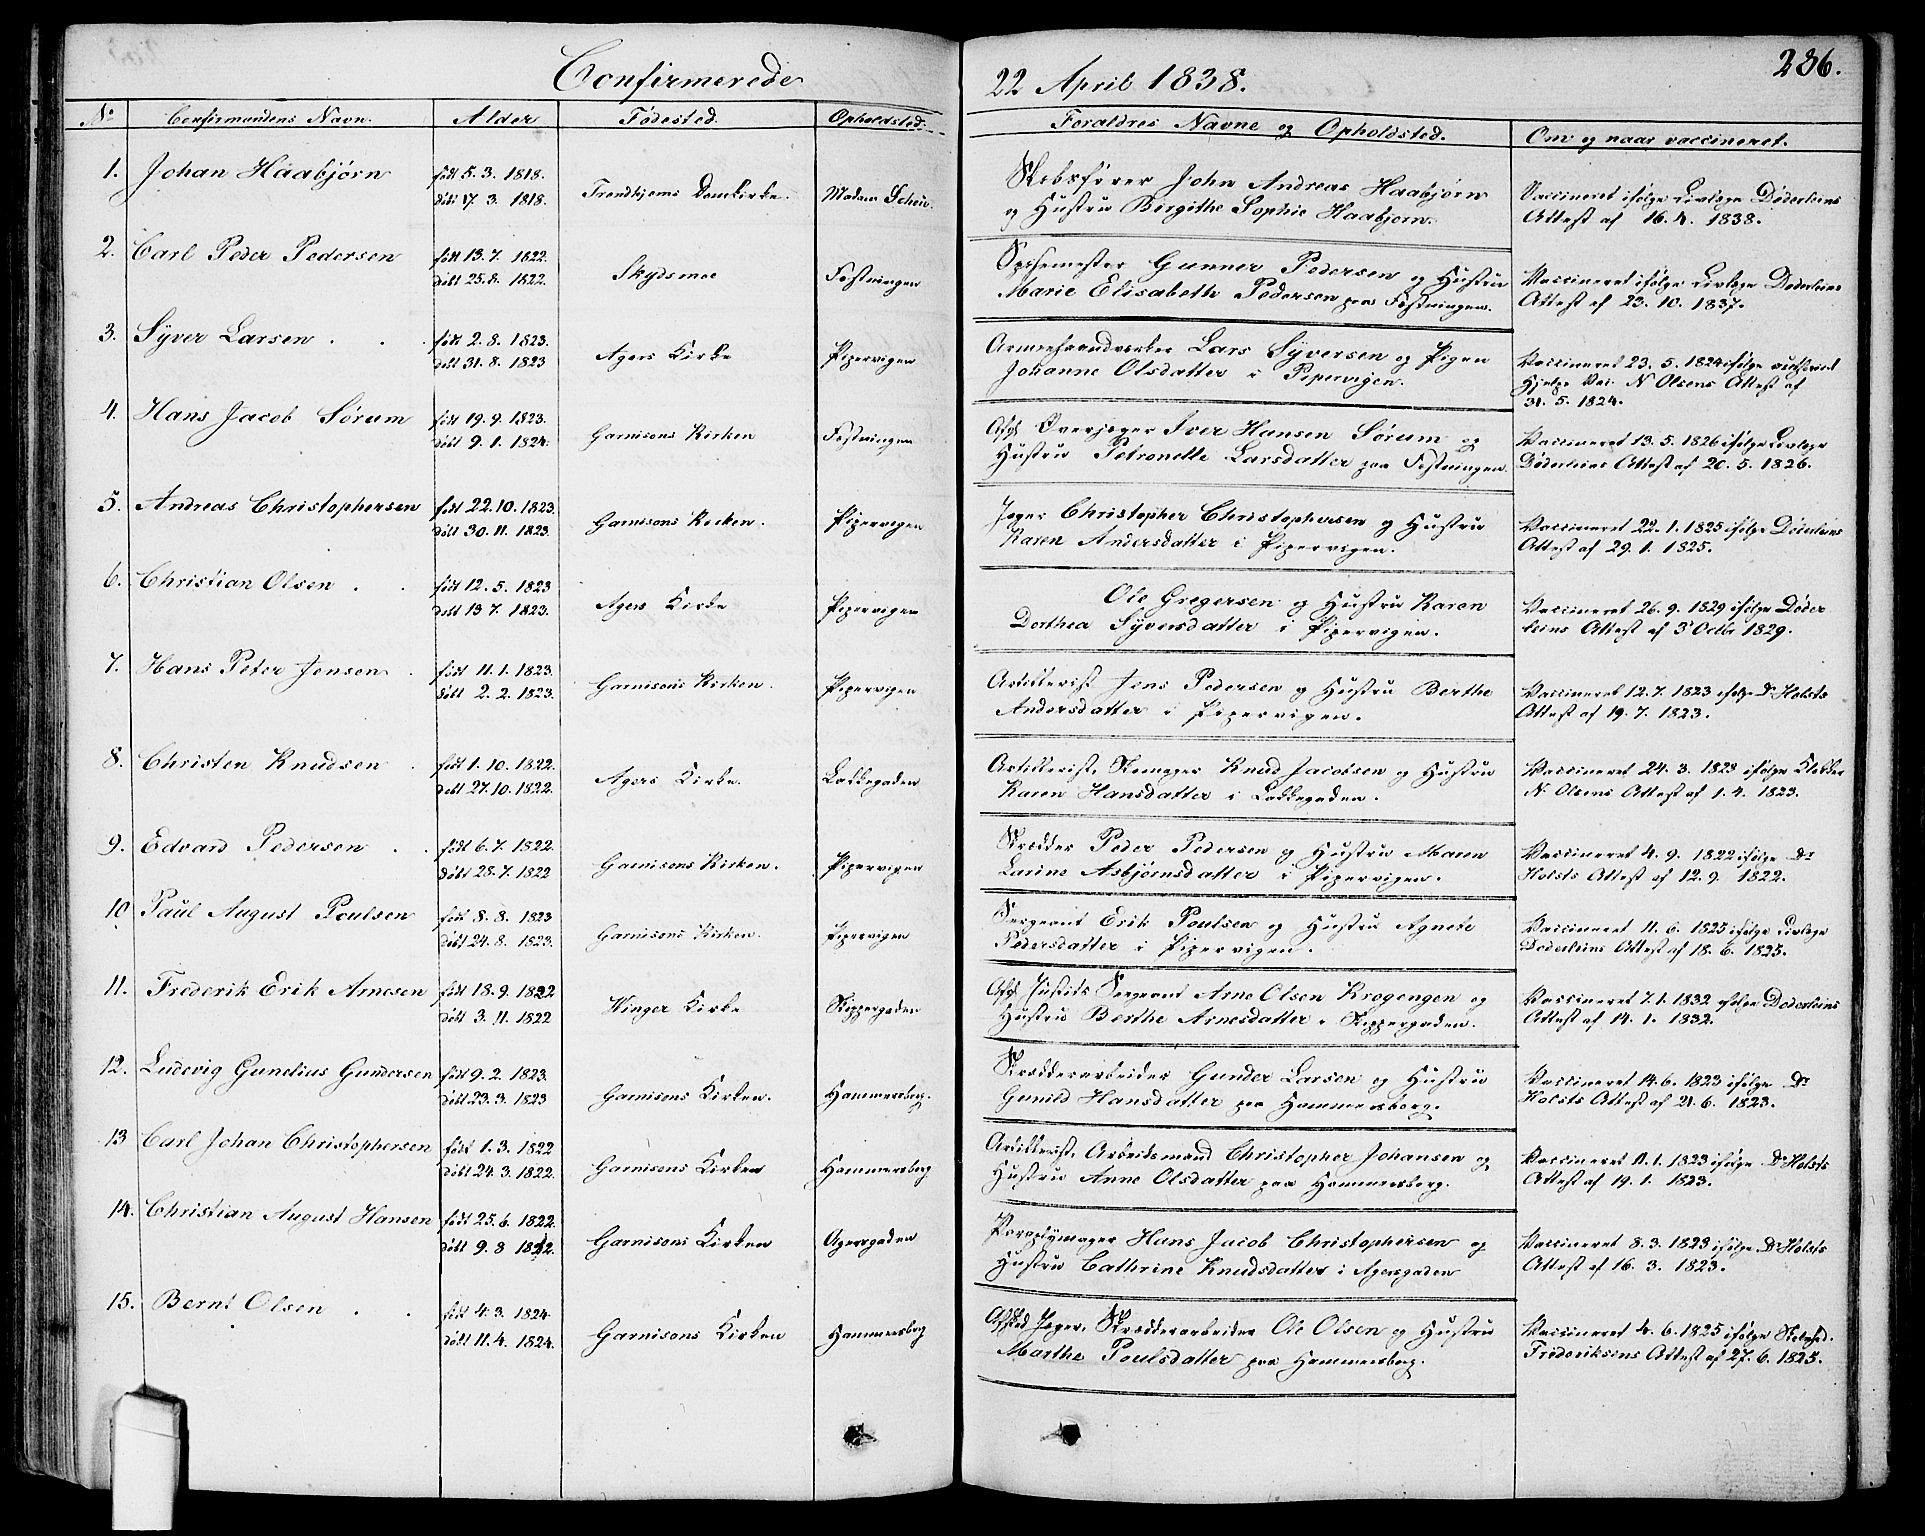 Confirmerede
22 April 1838.
236.
No Confirmandens Navn. Alder Fødested. Opholdsted.
Forældres Navne og Opholdsted. Om og naar vaccineret.
1. Johan Haabjørn født 5. 3. 1818. døbt 17. 3. 1818. Trondhjems Domkirke. Madam
Skibsfører John Andreas Haabjørn
og Hustru Birgithe Sophie Haabjørn.
Vaccineret ifølge Livlæge Døderleins
Attest af 16. 4. 1838.
2. Carl Peder Pedersen født 13. 7. 1822. døbt 25. 8. 1822. Skydsmoe Festningen
Gunner Pedersen og Hustru
Marie Elisabeth Pedersen paa Festningen.
Vaccineret ifølge Livlæge Døderleins
Attest af 23. 10. 1837.
3. Syver Larsen . . født 2. 8. 1823. døbt 31. 8. 1823 Agers Kirke Pipervigen
Lars Syversen og Pigen
Johanne Olsdatter i Pipervigen.
Vaccineret 23. 5. 1824 ifølge
Hjelpe Vac. N Olsens Attest af
31. 5. 1824.
4. Hans Jacob Sørum født 19. 9. 1823. døbt 9. 1. 1824. Garnisons Kirken Festningen
Afsk. Overjæger Iver Hansen Sørum og
Hustru Petronelle Larsdatter paa Festningen.
Vaccineret 13. 5. 1826 ifølge Livlæge
Døderleins Attest af 20. 5. 1826.
5. Andreas Christophersen født 22. 10. 1823. døbt 30. 11. 1823. Garnisons Kirken. Pipervigen
Jæger Christopher Christophersen og Hustru
Karen Andersdatter i Pipervigen.
Vaccineret 22. 1. 1825 ifølge Døderleins
Attest af 29. 1. 1825.
6. Christian Olsen . . født 12. 5. 1823 døbt 13 7. 1823. Agers Kirke Pipervigen
Ole Gregersen og Hustru Karen
Dorthea Syversdatter i Pipervigen.
Vaccineret 26. 9. 1829 ifølge Døder
leins Attest af 3 Octbr 1829.
7. Hans Peter Jensen . født 11. 1. 1823. døbt 2. 2. 1823. Garnisons Kirken. Pipervigen
Artillerist Jens Pedersen og Hustru Berthe
Andersdatter i Pipervigen.
Vaccineret 12. 7. 1823 ifølge Dr Holsts
Attest af 19. 7. 1823.
8. Christen Knudsen . født 1. 10. 1822. døbt 27. 10. 1822. Agers Kirke. Lakkegaden
Artillerist, Knud Jacobsen og Hustru
Karen Hansdatter i Lakkegaden.
Vaccineret 24. 3. 1823 ifølge Klokker
N. Olsens Attest af 1. 4. 1823.
9. Edvard Pedersen . . født 6. 7. 1822. døbt 28. 7. 1822 Garnisons Kirken. Pipervigen
Skrædder Peder Pedersen og Hustru Maren
Larine Asbjørnsdatter i Pipervigen.
Vaccineret 4. 9. 1822 ifølge Dr
Holsts Attest af 12. 9. 1822.
10 Paul August Poulsen født 8. 8. 1823 døbt 24. 8. 1823. Garnisons Kirken. Pipervigen
Sergeant Erik Poulsen og Hustru Agnete
Pedersdatter i Pipervigen.
Vaccineret 11. 6. 1825 ifølge Livlæge
Døderleins Attest af 18. 6. 1825.
11. Frederik Erik Arnesen født 18. 9. 1822 døbt 3. 11. 1822 Winger Kirke Skippergaden
Afsk. Justits Sergeant Arne Olsen Krogengen og
Hustru Berthe Arnesdatter i Skippergaden.
Vaccineret 7. 1. 1832 ifølge Døderleins
Attest af 14. 1. 1832.
12. Ludevig Gunelius Gundersen født 9. 2. 1823. døbt 23. 3. 1823 Garnisons Kirken. Hammersborg.
Skrædderarbeider Gunder Larsen og Hustru
Gunild Hansdatter paa Hammersborg.
Vaccineret 14. 6. 1823 ifølge Dr
Holsts Attest af 21. 6. 1823.
13 Carl Johan Christophersen født 1. 3. 1822 døbt 24. 3. 1822. Garnisons Kirken Hammersborg
Artillerist, Arbeidsmand Christopher Johansen og
Hustru Anne Olsdatter paa Hammersborg.
Vaccineret 11. 1. 1823 ifølge Dr Holsts
Attest af 19. 1. 1823.
14. Christian August Hansen født 25. 6. 1822. døbt 9. 8 1822. Garnisons Kirken Agersgaden
Paraplymager Hans Jacob Christophersen og
Hustru Cathrine Knudsdatter i Agersgaden
Vaccineret 8. 3. 1823 ifølge Dr Holsts
Attest af 16. 3. 1823.
15. Bernt Olsen . . født 4. 3. 1824 døbt 11. 4. 1824. Garnisons Kirken Hammersborg
Afsked Jæger, Skrædderarbeider Ole Olsen og Hustru
Marthe Poulsdatter paa Hammersborg.
Vaccineret 4. 6. 1825 ifølge
Frederiksens Attest af 27. 6. 1825.